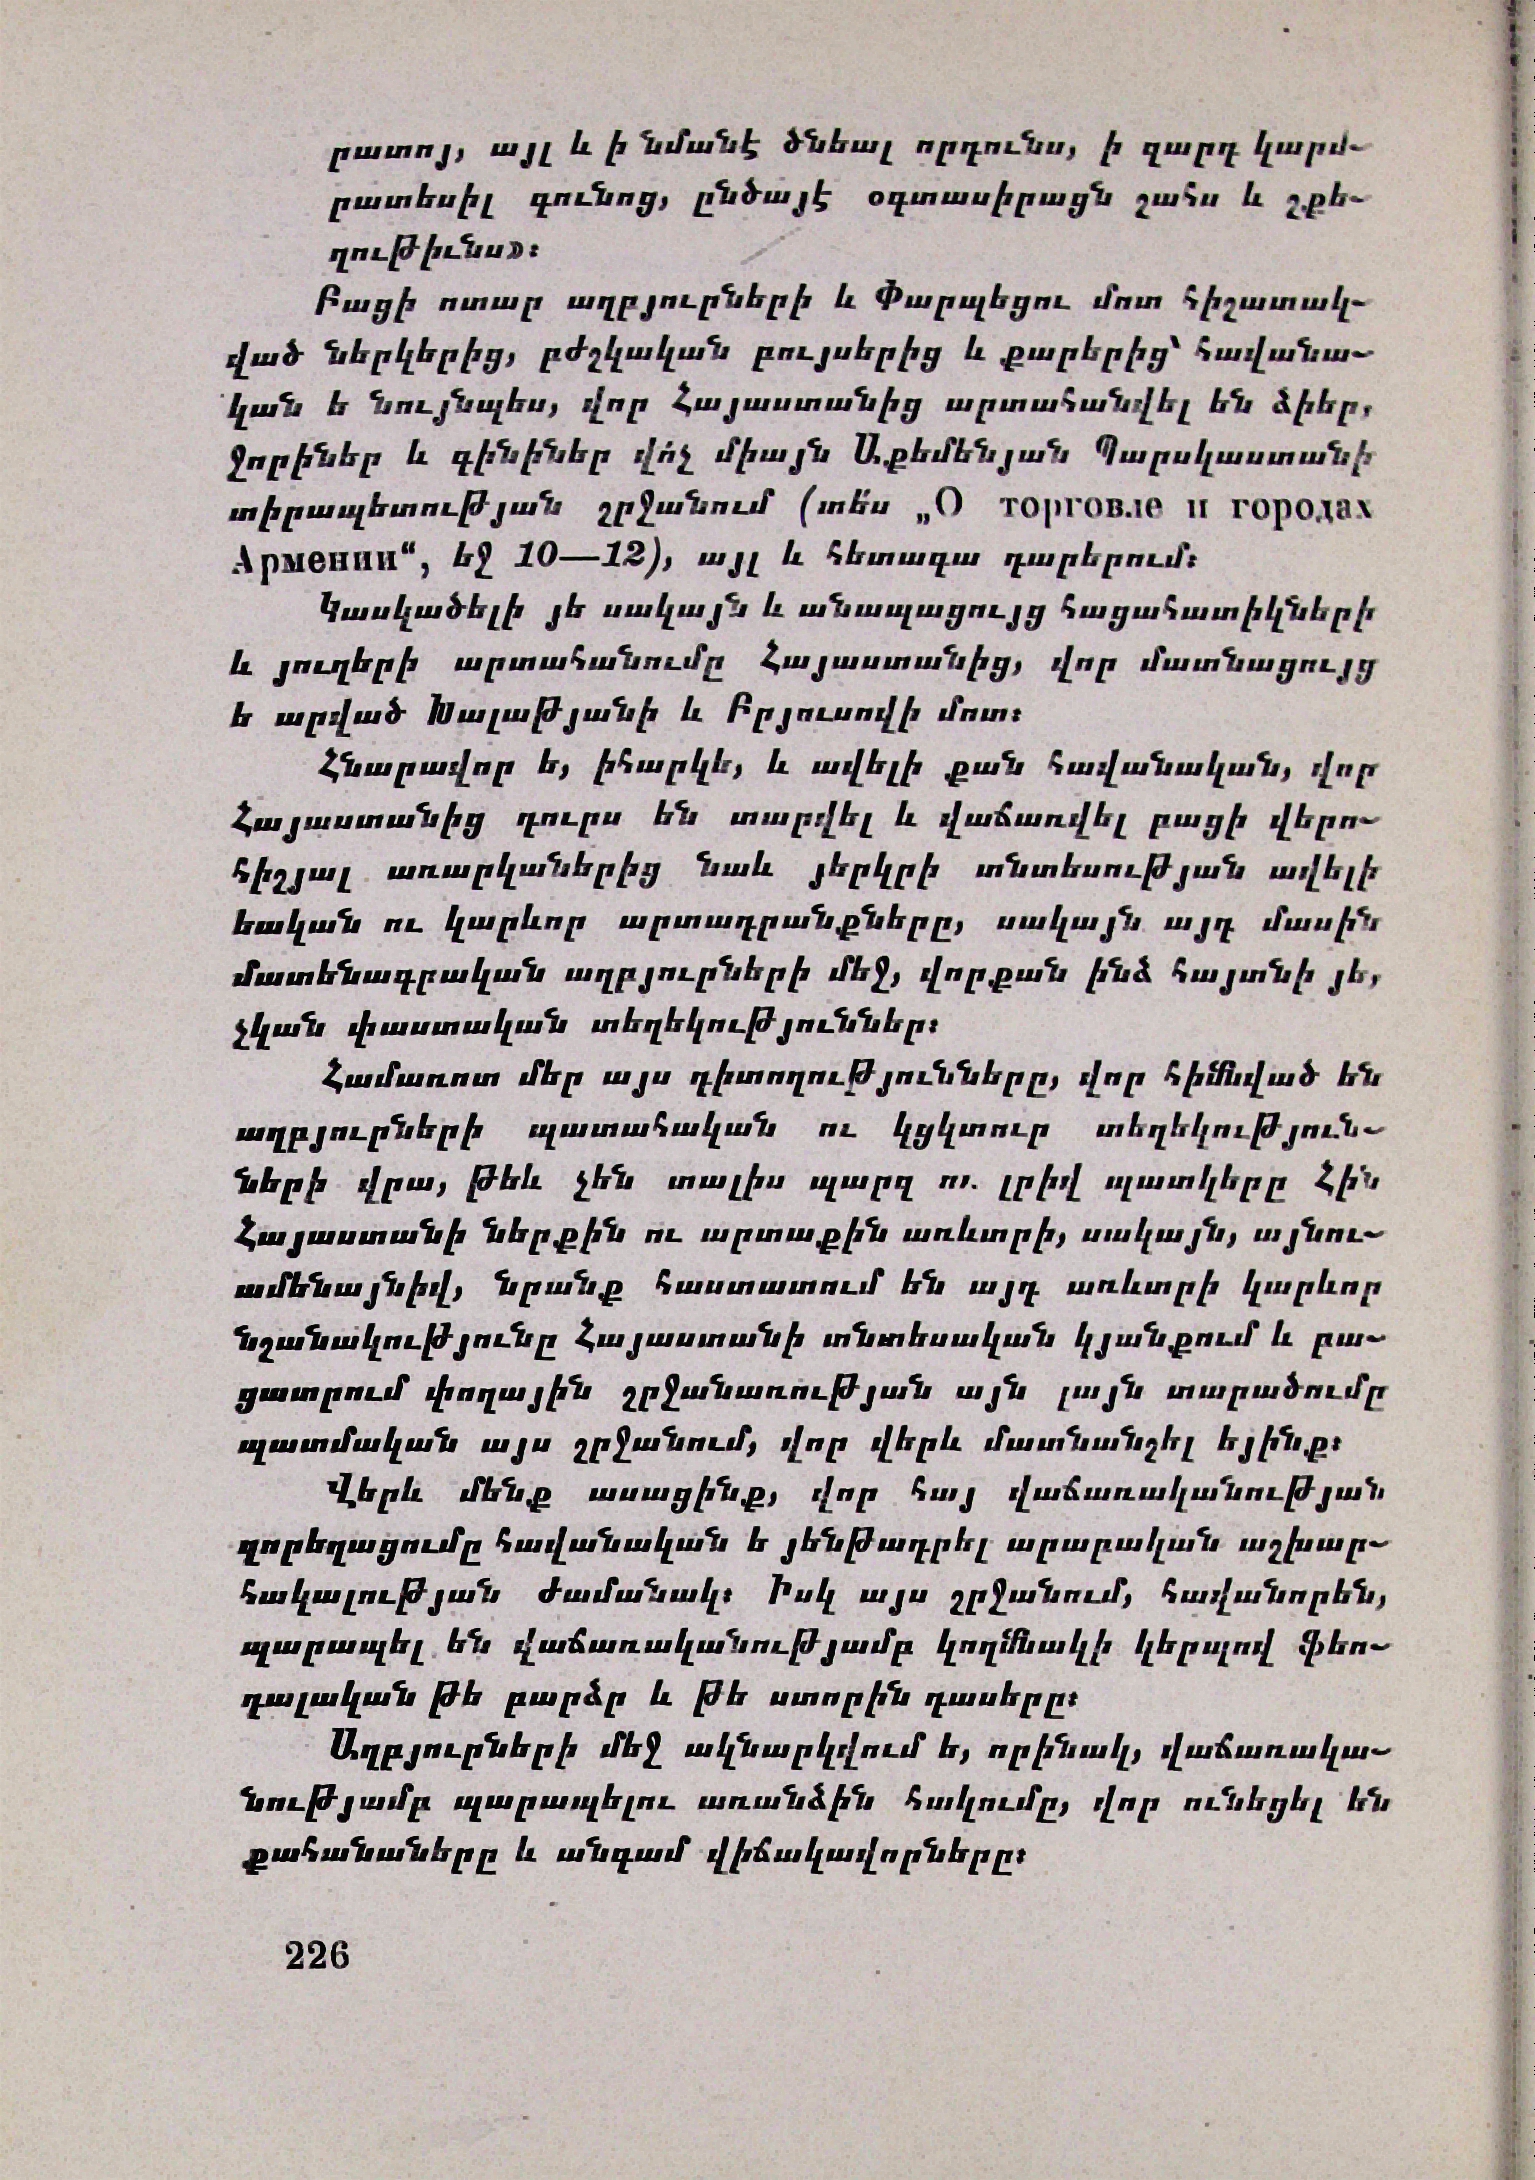 րատոյ, այլ և ի նմանէ ծնեալ որդունս, ի զարդ կարմ-
րատեսիլ գունոց, ընծայէ օգտասիրացն շահս և շքե-
ղութիւնս»։
Բացի ոտար աղբյուրների և Փարպեցու մոտ հիշատակ-
ված ներկերից, բժշկական բույսերից և քարերից՝ հավանա-
կան ե նույնպես, վոր Հայաստանից արտահանվել են ձիեր,
ջորիներ և գինիներ վո՛չ միայն Աքեմենյան Պարսկաստանի
տիրապետության շրջանում (տե՛ս „О торговле и городах
Армении“, եջ 10—12), այլ և հետագա դարերում։
Կասկածելի յե սակայն և անապացույց հացահատիկների
և յուղերի արտահանումը Հայաստանից, վոր մատնացույց
ե արված Խալաթյանի և Բրյուսովի մոտ։
Հնարավոր ե, իհարկե, և ավելի քան հավանական, վոր
Հայաստանից դուրս են տարվել և վաճառվել բացի վերո-
հիշյալ առարկաներից նաև յերկրի տնտեսության ավելի
եական ու կարևոր արտադրանքները, սակայն այդ մասին
մատենագրական աղբյուրների մեջ, վորքան ինձ հայտնի յե,
չկան փաստական տեղեկություններ։
Համառոտ մեր այս դիտողությունները, վոր հիմնված են
աղբյուրների պատահական ու կցկտուր տեղեկություն-
ների վրա, թեև չեն տալիս պարզ ու լրիվ պատկերը Հին
Հայաստանի ներքին ու արտաքին առևտրի, սակայն, այնու-
ամենայնիվ, նրանք հաստատում են այդ առևտրի կարևոր
նշանակությունը Հայաստանի տնտեսական կյանքում և բա-
ցատրում փողային շրջանառության այն լայն տարածումը
պատմական այս շրջանում, վոր վերև մատնանշել եյինք։
Վերև մենք ասացինք, վոր հայ վաճառականության
զորեղացումը հավանական ե յենթադրել արաբական աշխար-
հակալության ժամանակ։ Իսկ այս շրջանում, հավանորեն,
պարապել են վաճառականությամբ կողմնակի կերպով ֆեո-
դալական թե բարձր և թե ստորին դասերը։
Աղբյուրների մեջ ակնարկվում ե, որինակ, վաճառակա-
նությամբ պարապելու առանձին հակումը, վոր ունեցել են
քահանաները և անգամ վիճակավորները։
226